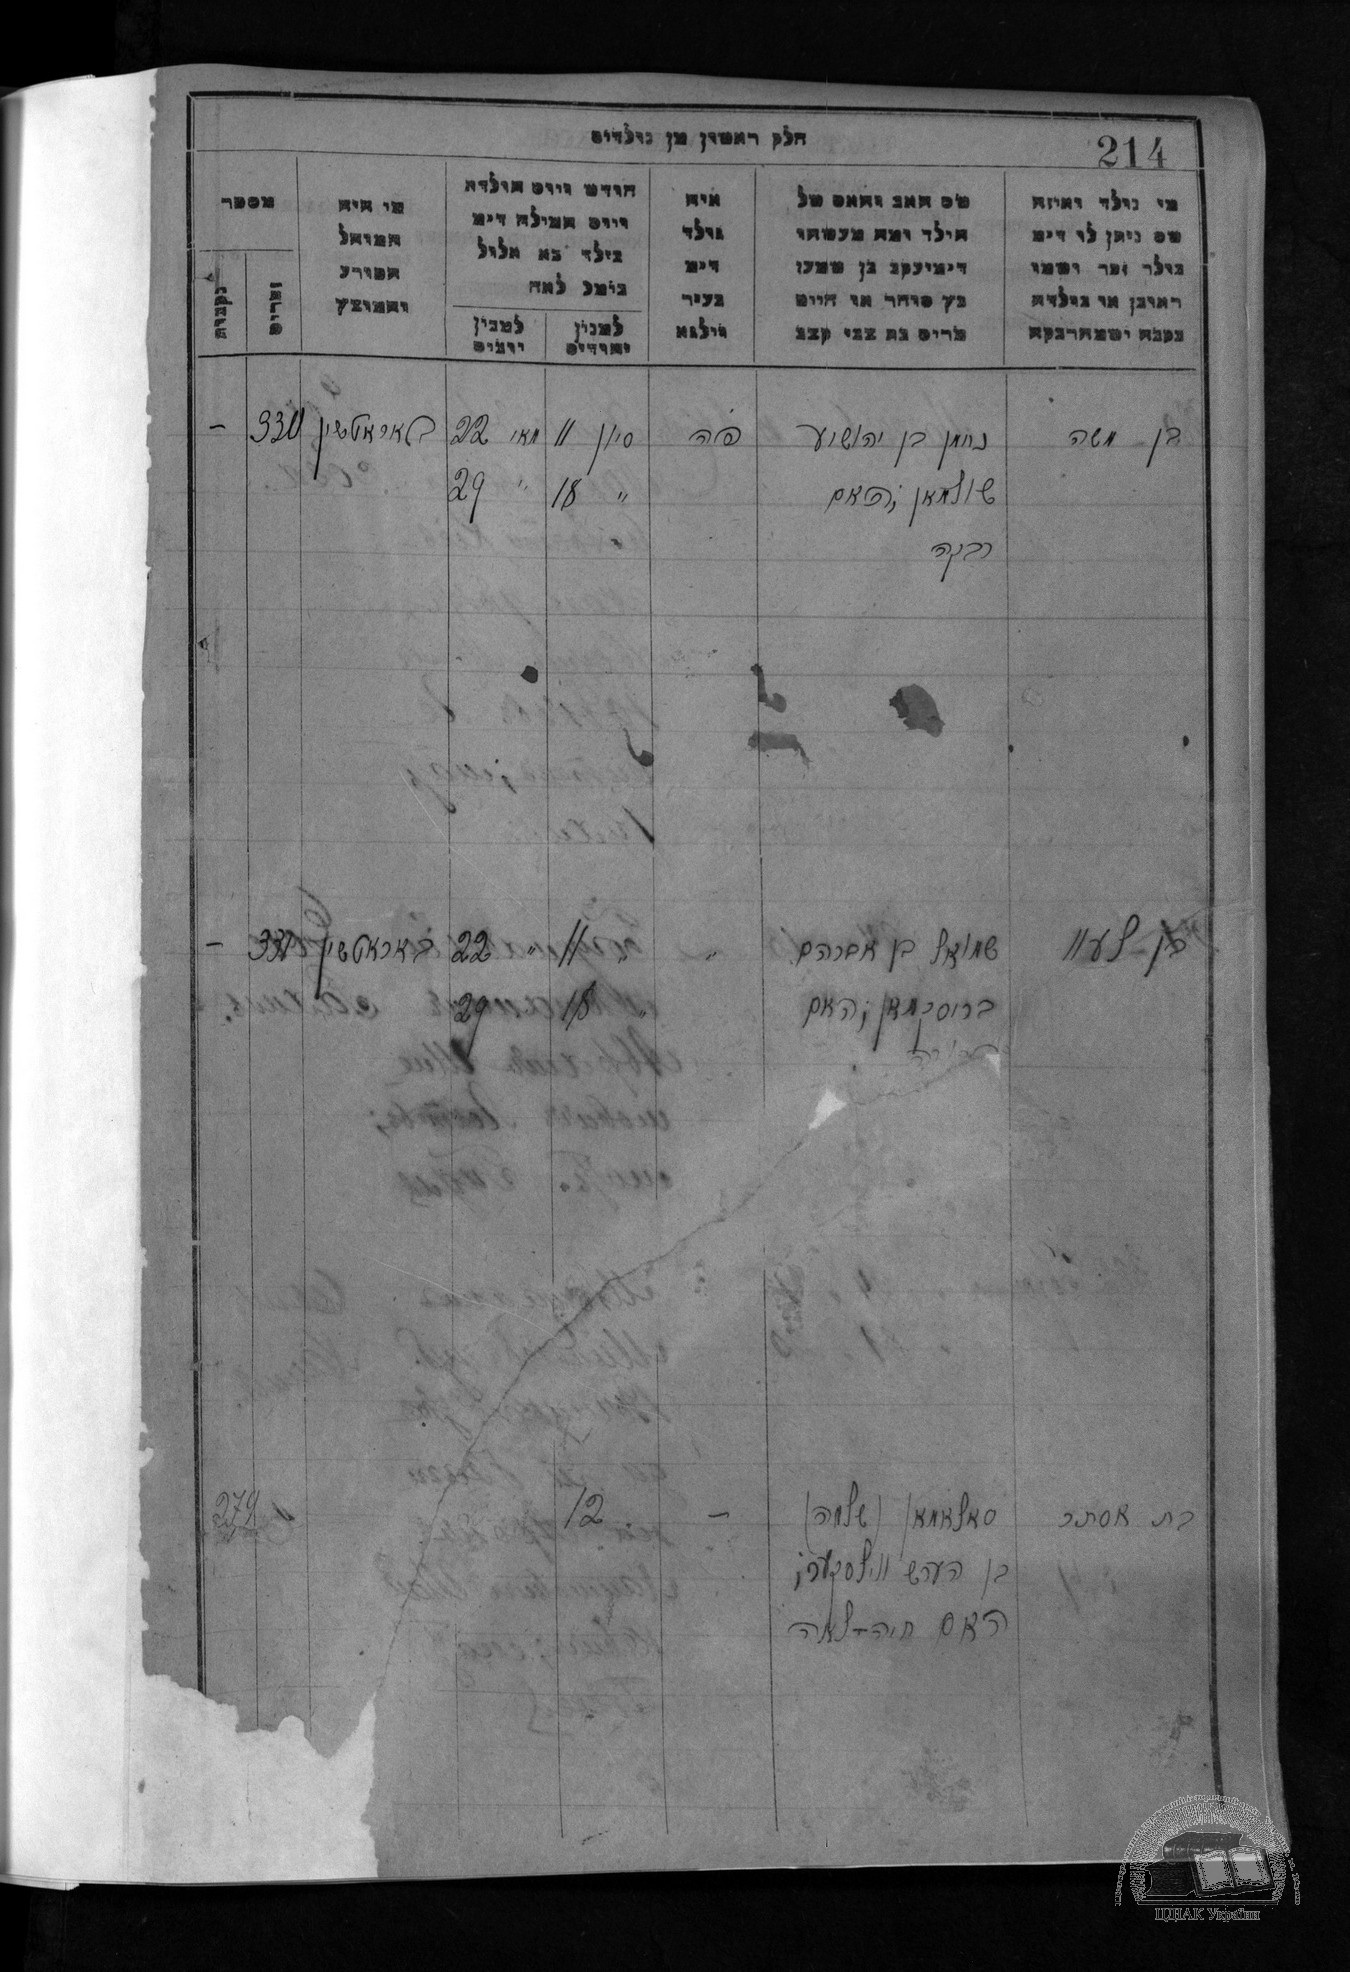 214
חלק ראשון מן נולדים
מי נולד ואיזה
שם ניתן לו דימ
נולד זכר ושמו
ראובן או נולדה
נקבה ושמה רבקה
שם האב והאם של
הילד ומה מעשהו
דימ יעקב בן שמעון
כץ סוחר או חיים
מרים בת צבי קצב
איה
נולד
דימ
בעיר
ווילנא
חודש ויום הולדה
ויום המילה דימ
נילד בא אלול
נימל לאח
למנין
יהודים
למנין
יונים
מי היה
המוהל
הפורע
והמוצץ
מספר
זכרים
נקבות
בן משה
נחמן בן יהושוע
שולמאן ; האם
רבקה
פה
סיון 11
" 18
מאי 22
" 29
באראטשין
330
—
בן לעוו
שמואל בן אברהם
ברוסקמאן ; האם
"
" 11
" 18
" 22
29
באראטשין
331
—
בת אסתר
סאלאמאן (שלמה)
בן הערש ווילסקער ;
האם חיה-לאה
—
12
279
ЦДІАК України